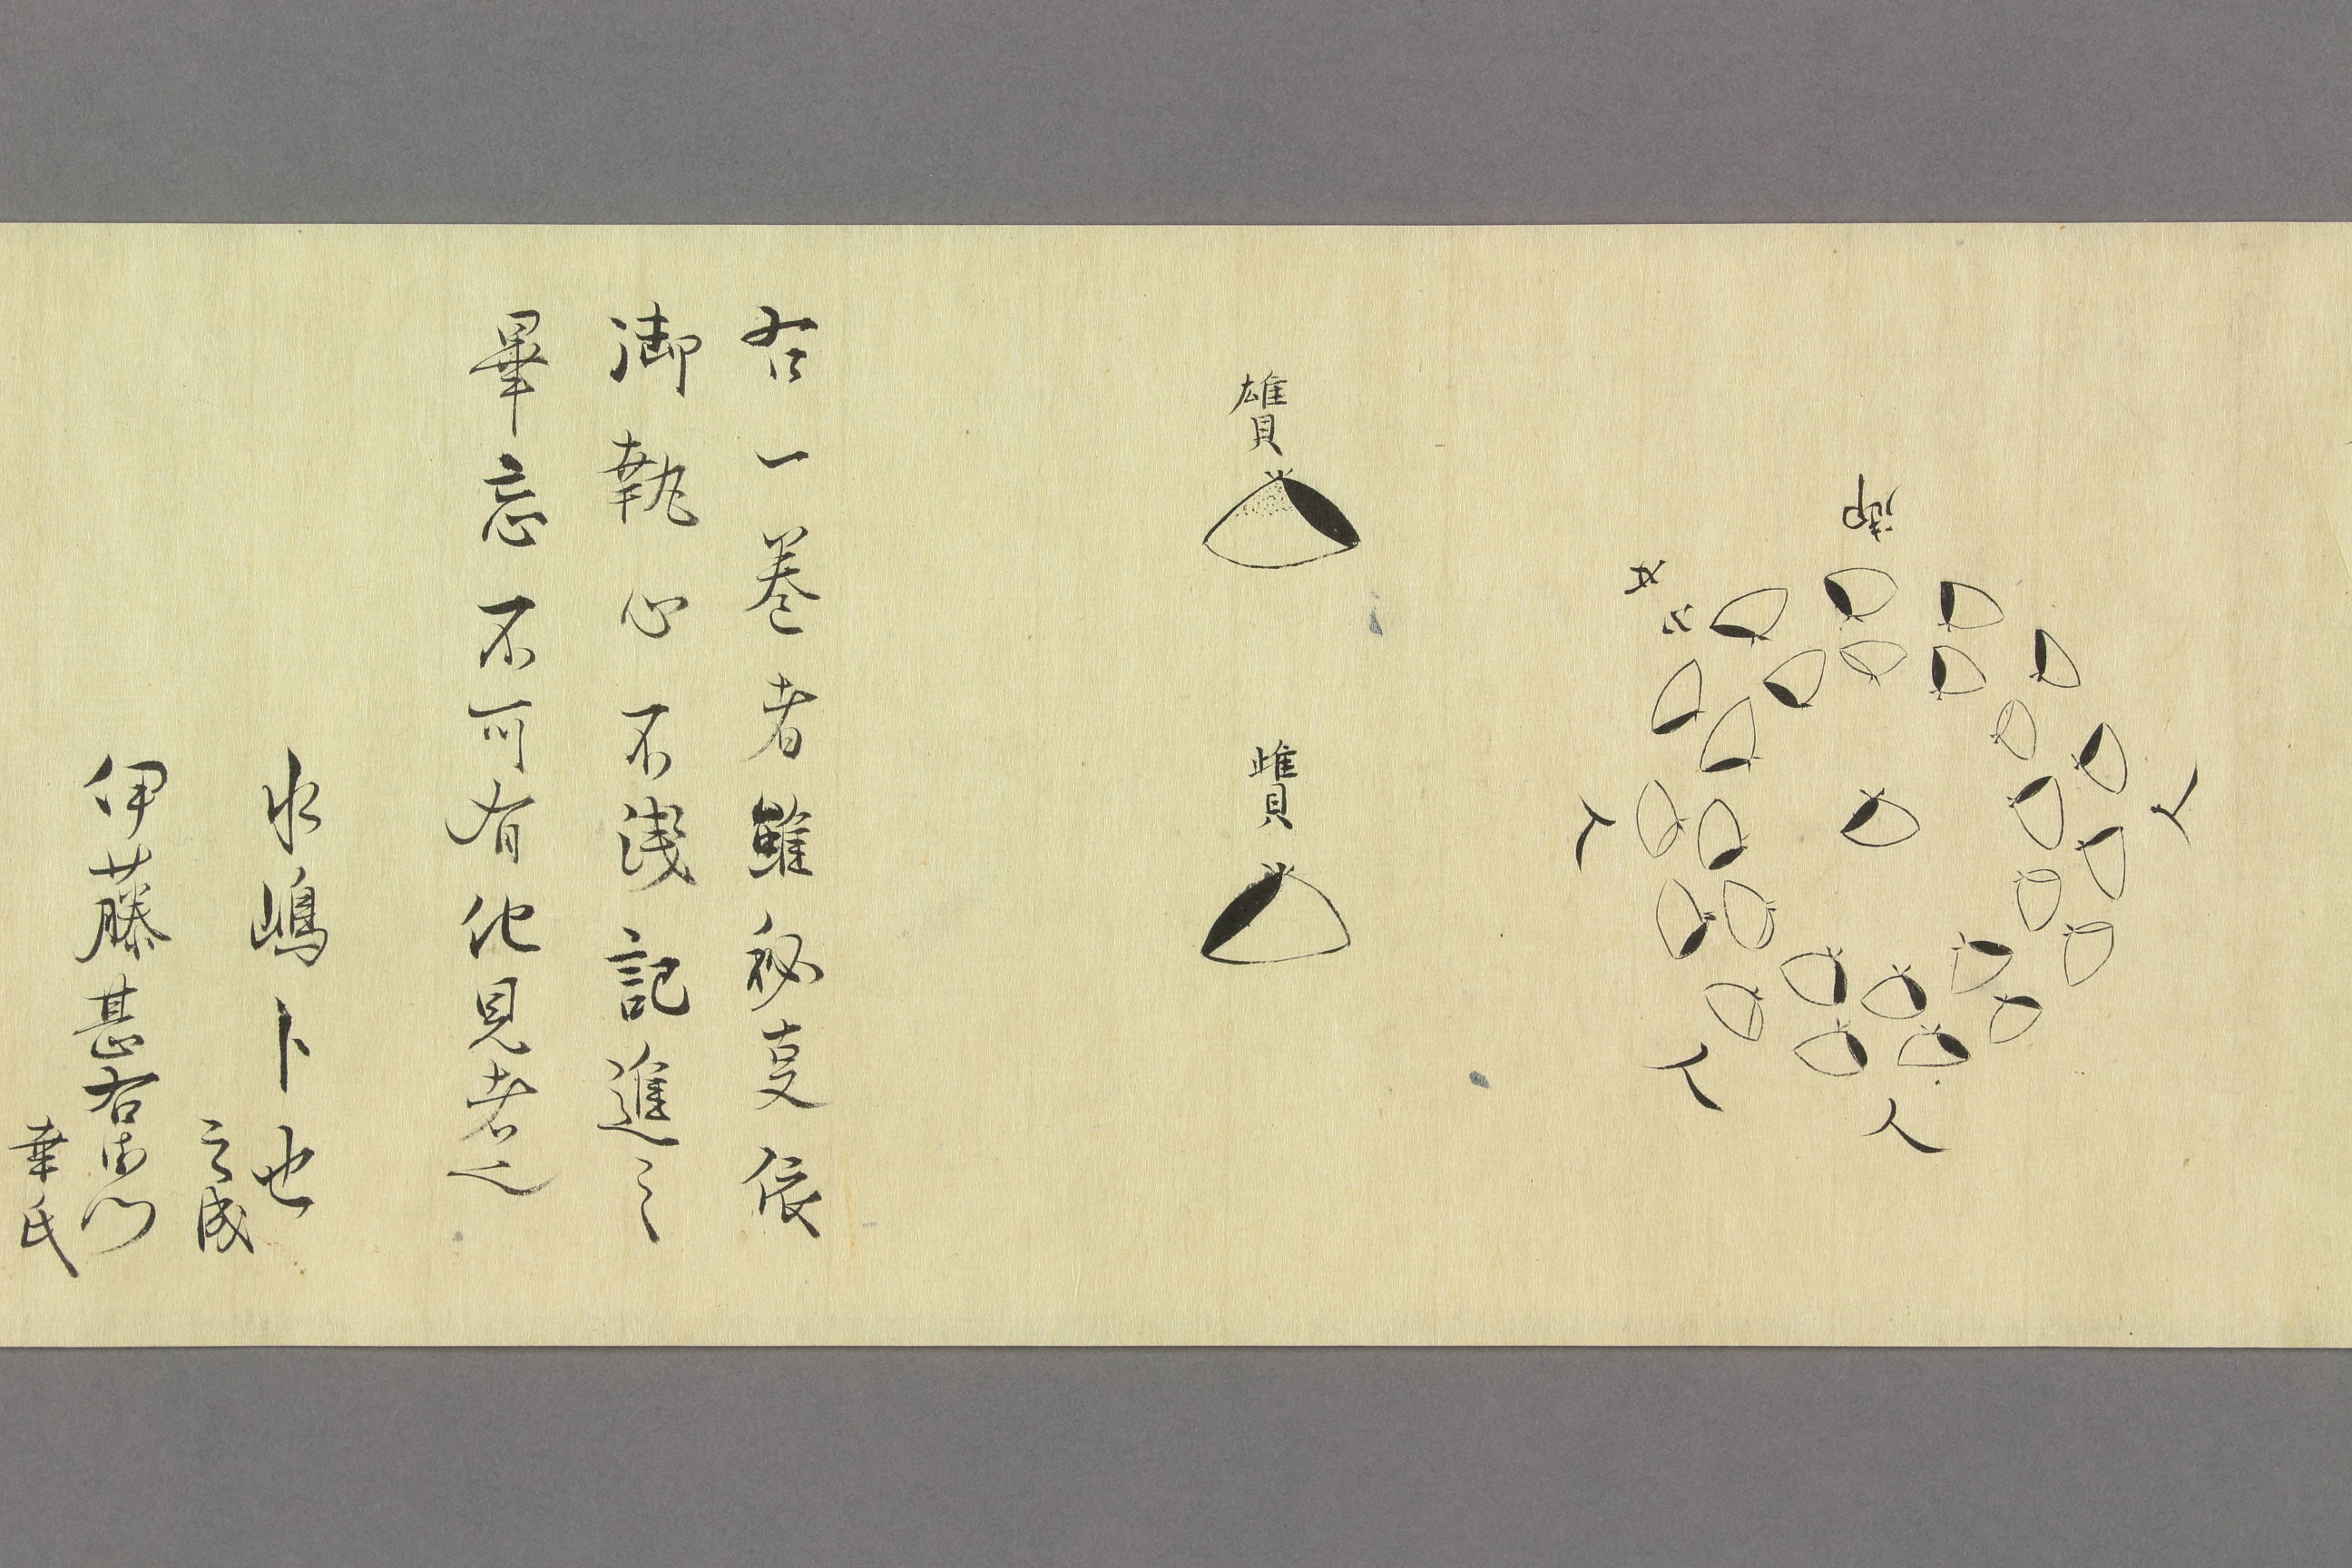 御
女
人
人
人
人
雄貝
雌貝
右一巻者雖秘㕝依
御執心不浅記進之
畢忘不可有他見者也
水嶋卜也
之成
伊藤甚右衛門
幸氏